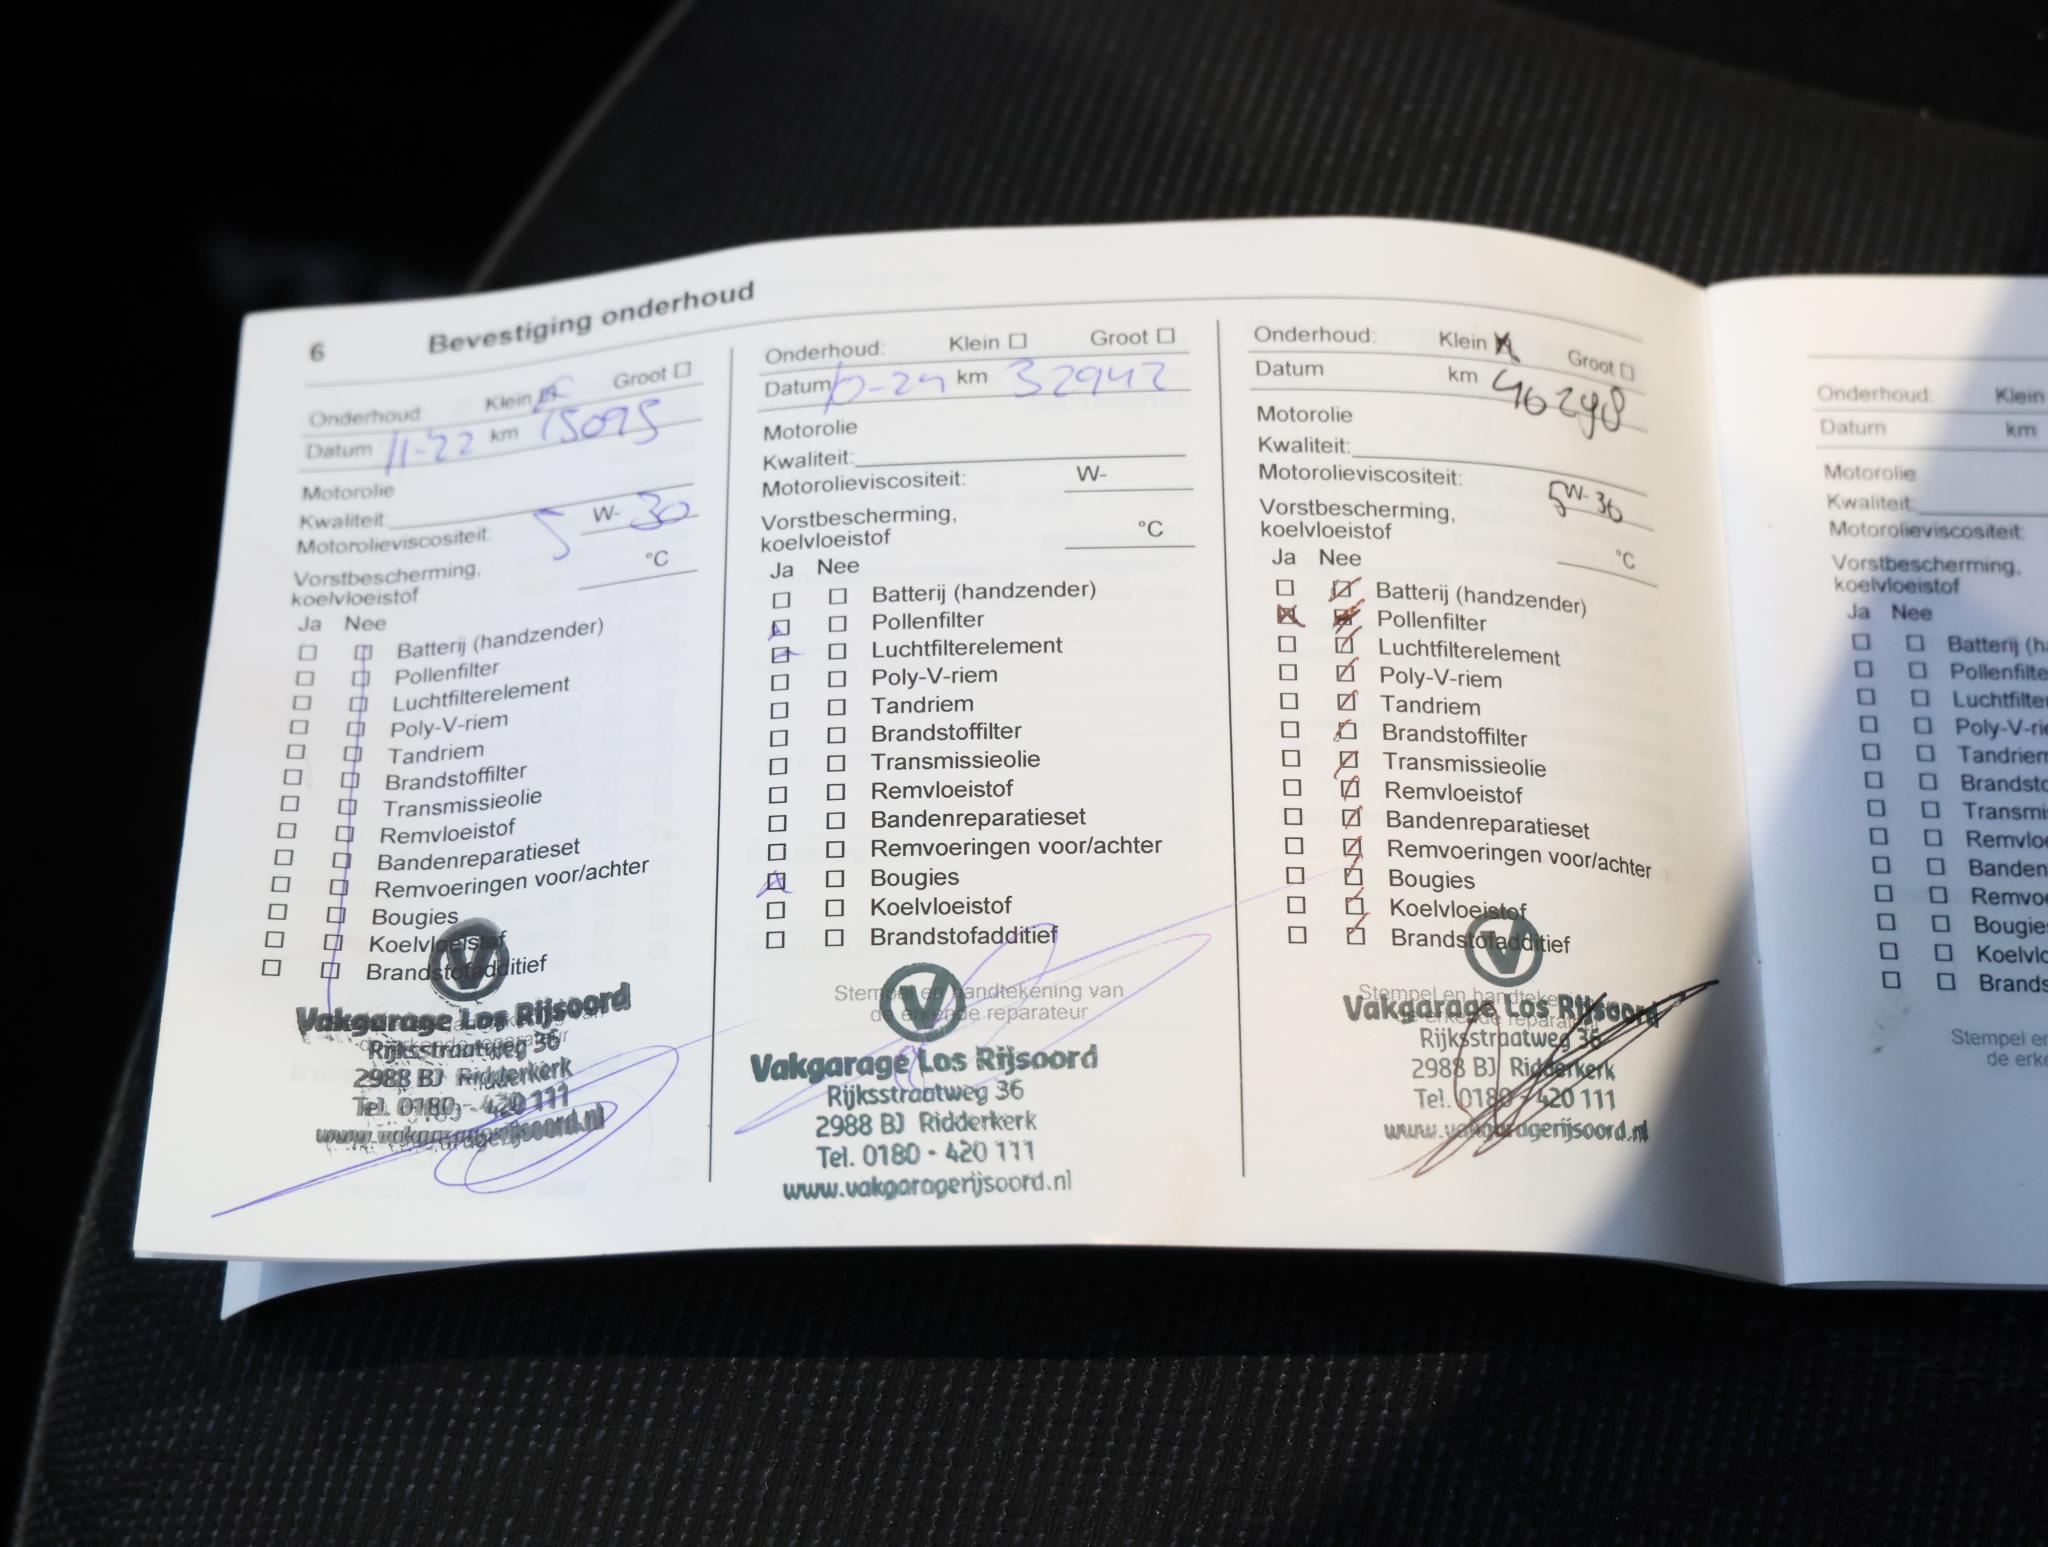 6 Bevestiging onderhoud
Onderhoud: Klein Groot
Datum 11-'22 km 15095
Motorolie
Kwaliteit:
Motorolieviscositeit: 5 W- 30
Vorstbescherming,
koelvloeistof °C
Ja Nee
Batterij (handzender)
Pollenfilter
Luchtfilterelement
Poly-V-riem
Tandriem
Brandstoffilter
Transmissieolie
Remvloeistof
Bandenreparatieset
Remvoeringen voor/achter
Bougies
Koelvloeistof
Brandstofadditief
Vakgarage Los Rijsoord
Rijksstraatweg 36
2988 BJ Ridderkerk
Tel. 0180 - 420 111
www.vakgaragerijsoord.nl
Onderhoud: Klein Groot
Datum km 32942
Motorolie
Kwaliteit:
Motorolieviscositeit: W-
Vorstbescherming,
koelvloeistof °C
Ja Nee
Batterij (handzender)
Pollenfilter
Luchtfilterelement
Poly-V-riem
Tandriem
Brandstoffilter
Transmissieolie
Remvloeistof
Bandenreparatieset
Remvoeringen voor/achter
Bougies
Koelvloeistof
Brandstofadditief
Stempel en handtekening van
de erkende reparateur
Vakgarage Los Rijsoord
Rijksstraatweg 36
2988 BJ Ridderkerk
Tel. 0180 - 420 111
www.vakgaragerijsoord.nl
Onderhoud: Klein Groot
Datum km 46298
Motorolie
Kwaliteit:
Motorolieviscositeit: 5 W- 30
Vorstbescherming,
koelvloeistof °C
Ja Nee
Batterij (handzender)
Pollenfilter
Luchtfilterelement
Poly-V-riem
Tandriem
Brandstoffilter
Transmissieolie
Remvloeistof
Bandenreparatieset
Remvoeringen voor/achter
Bougies
Koelvloeistof
Brandstofadditief
Stempel en handtekening
de erkende reparateur
Vakgarage Los Rijsoord
Rijksstraatweg 36
2988 BJ Ridderkerk
Tel. 0180 - 420 111
www.vakgaragerijsoord.nl
Onderhoud: Klein
Datum km
Motorolie
Kwaliteit:
Motorolieviscositeit:
Vorstbescherming,
koelvloeistof
Ja Nee
Batterij (ha
Pollenfilte
Luchtfilter
Poly-V-rie
Tandriem
Brandsto
Transmi
Remvloe
Banden
Remvo
Bougie
Koelvl
Brands
Stempel en
de erke